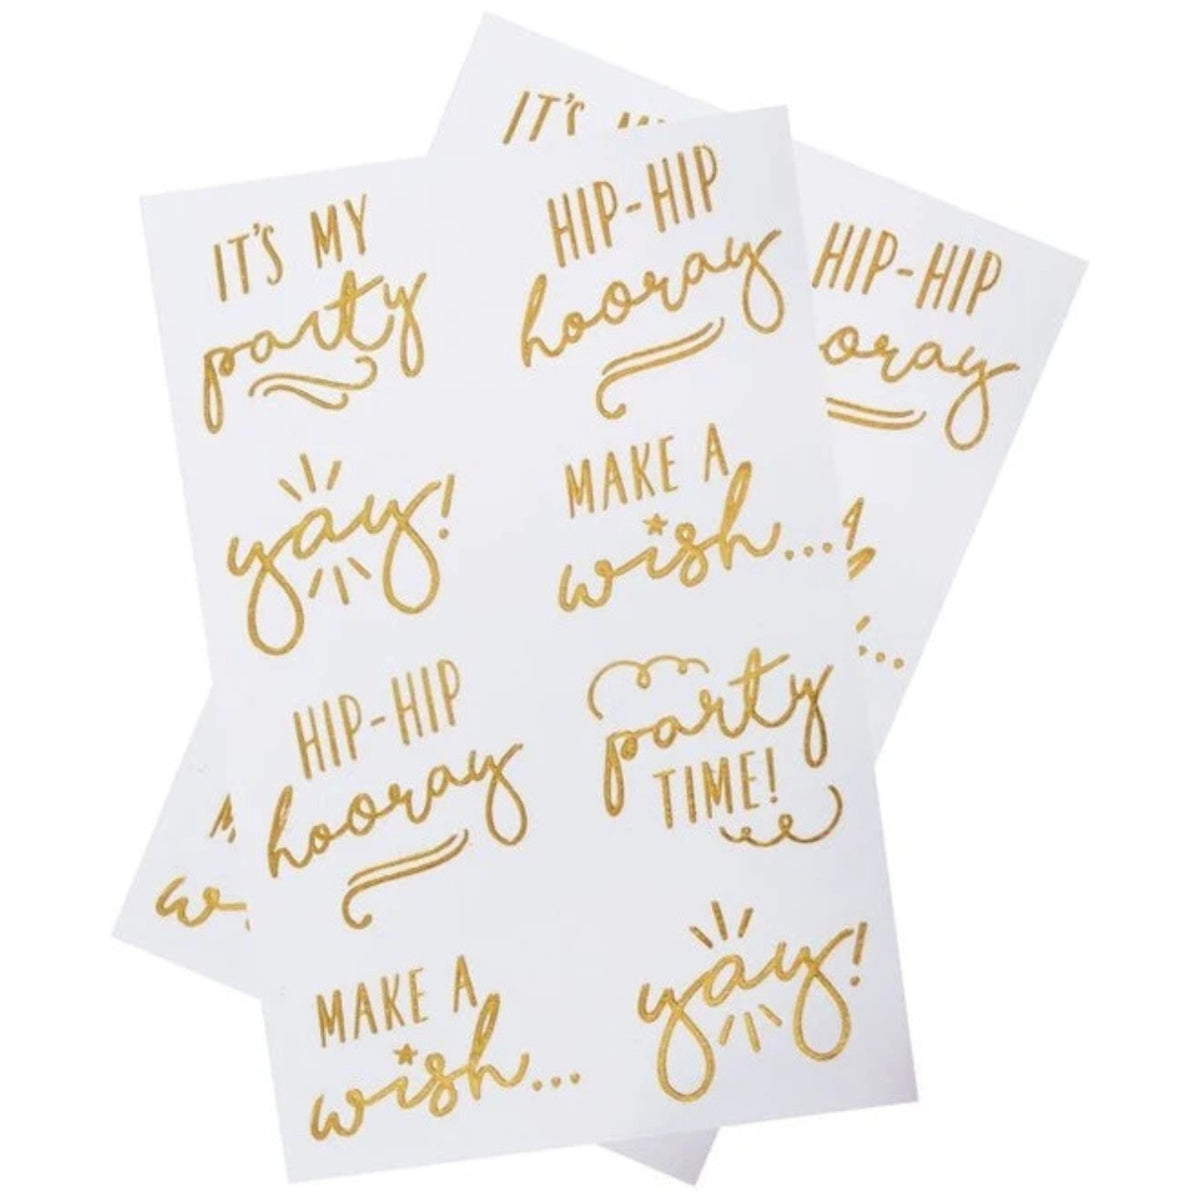 IT'S MY
party
HIP-HIP
hooray
yay!
MAKE A
wish...
HIP-HIP
hooray
party
TIME!
MAKE A
wish...
yay!
IT'S
HIP-HIP